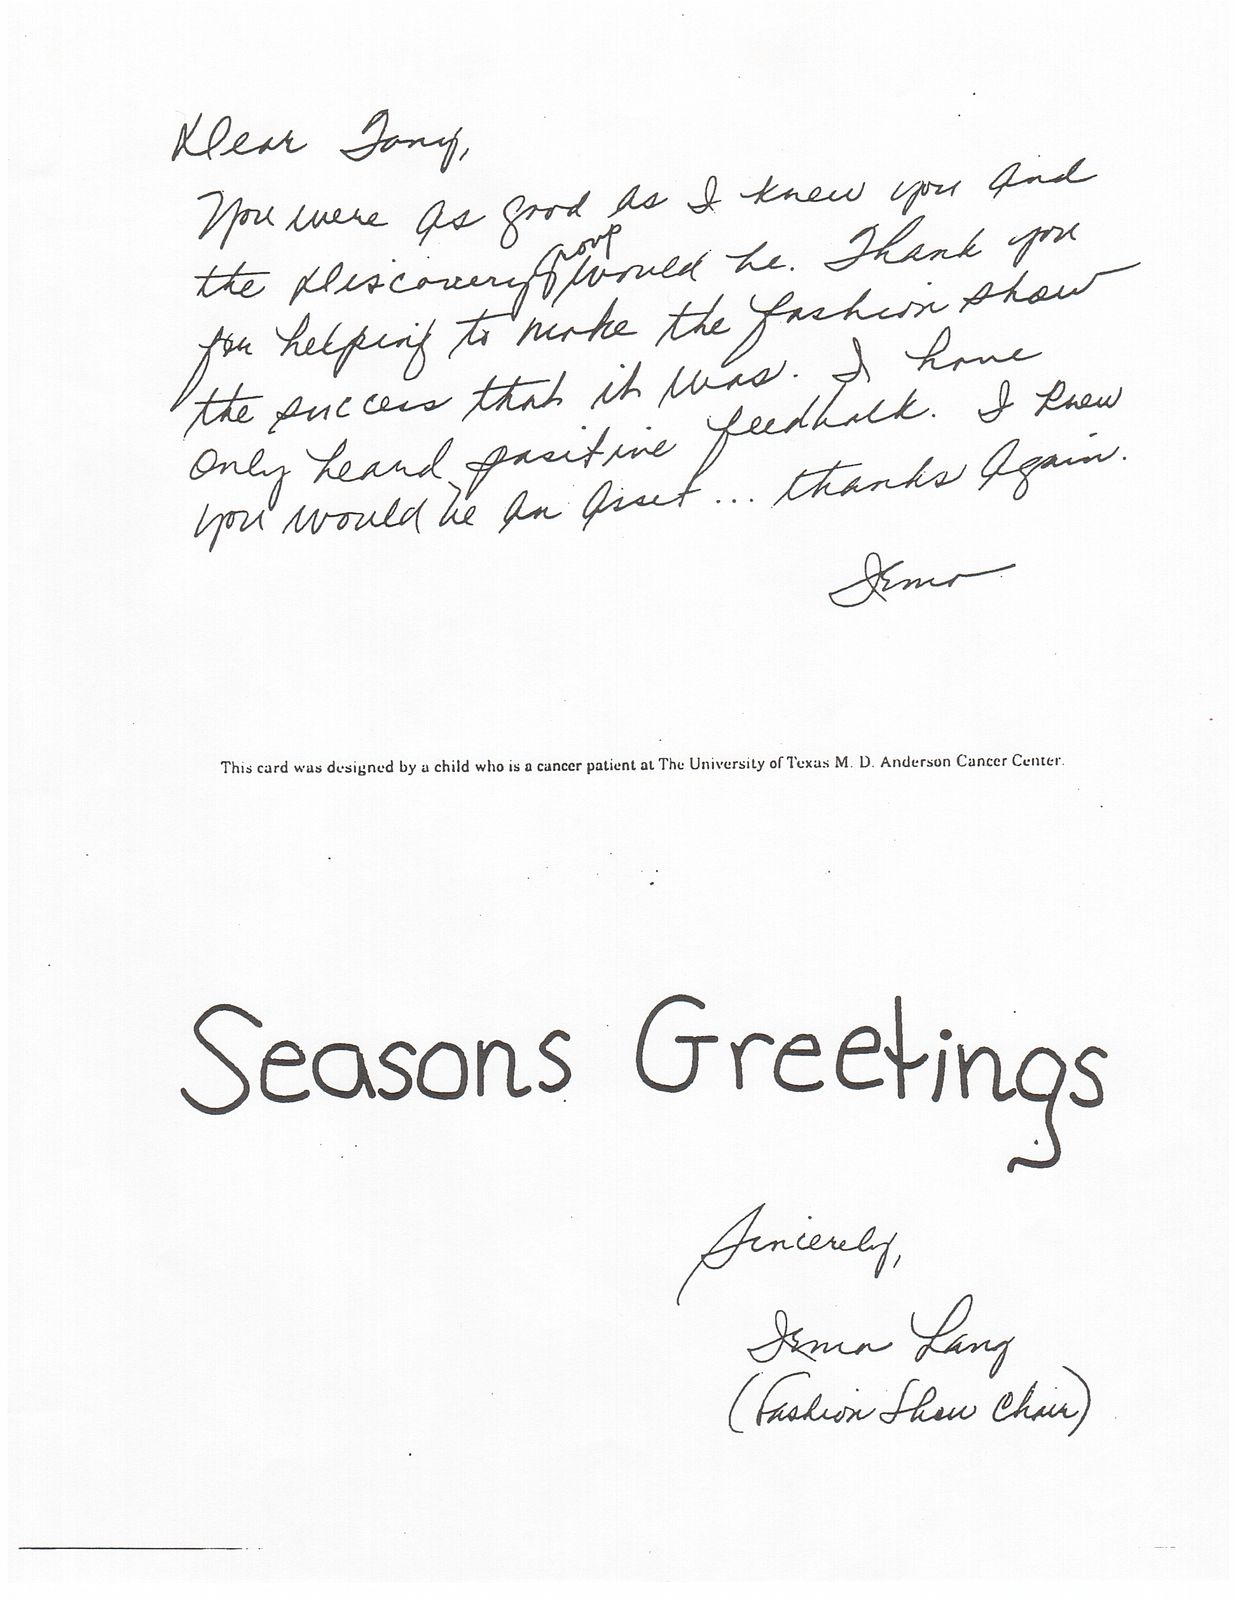 Dear Tony,
You were as good as I knew you and
the Discovery Group would be. Thank you
for helping to make the fashion show
the success that it was. I have
only heard positive feedback. I knew
you would be an asset... thanks again.
Irma
This card was designed by a child who is a cancer patient at The University of Texas M. D. Anderson Cancer Center.
Seasons Greetings
Sincerely,
Irma Lang
(Fashion Show Chair)